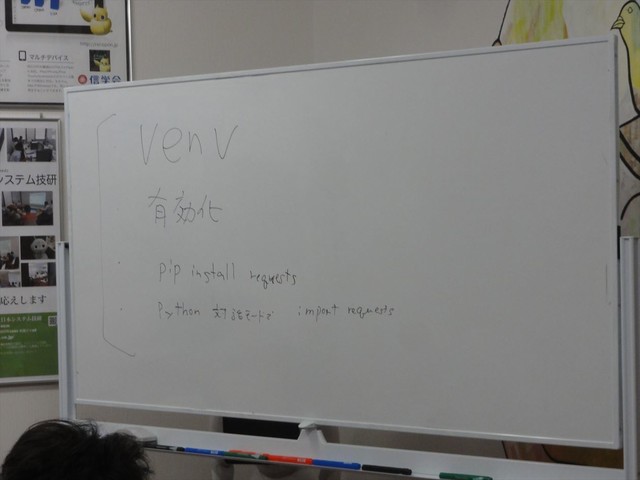 マルチデバイス
信学会
システム技研
応えします
venv
有効化
・ pip install requests
・ Python 対話モードで import requests